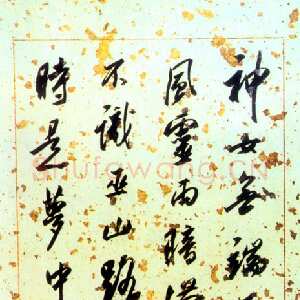 神女無端
風靈雨暗
不識巫山路
時是夢中
shufawang.cn